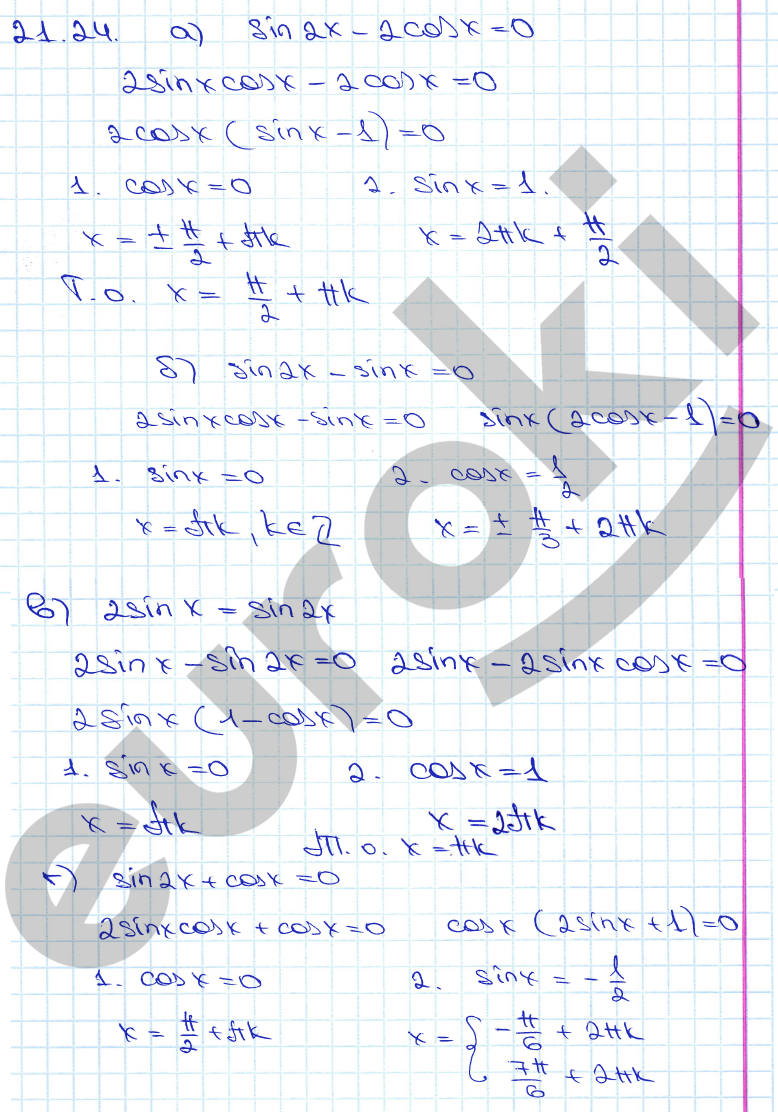 21.24. а) sin2x - 2cosx = 0
2sinxcosx - 2cosx = 0
2cosx (sinx - 1) = 0
1. cosx = 0 2. sinx = 1.
x = ± π/2 + πk x = 2πk + π/2
Т.о. x = π/2 + πk
б) sin2x - sinx = 0
2sinxcosx - sinx = 0 sinx (2cosx - 1) = 0
1. sinx = 0 2. cosx = 1/2
x = πk, k ∈ Z x = ± π/3 + 2πk
в) 2sinx = sin2x
2sinx - sin2x = 0 2sinx - 2sinxcosx = 0
2sinx (1 - cosx) = 0
1. sinx = 0 2. cosx = 1
x = πk x = 2πk
Т.о. x = πk
г) sin2x + cosx = 0
2sinxcosx + cosx = 0 cosx (2sinx + 1) = 0
1. cosx = 0 2. sinx = - 1/2
x = π/2 + πk x = { - π/6 + 2πk
7π/6 + 2πk
euroki